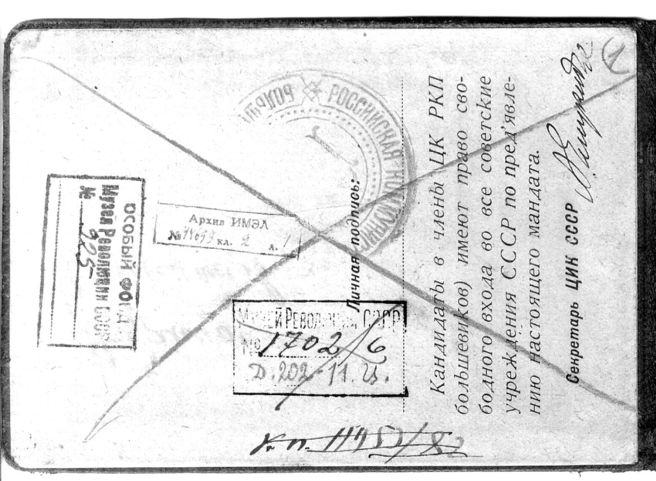 Кандидаты в члены ЦК РКП
(большевиков) имеют право сво-
бодного входа во все советские
учреждения СССР по пред'явле-
нию настоящего мандата.
Секретарь ЦИК СССР
Личная подпись:
РОССИЙСКАЯ
Архив ИМЭЛ
кл. 2 л. 1
ОСОБЫЙ ФОНД
Музея Революции СССР
№ 925
Музей Революции СССР
№ 1702/6
Д. 202-11.